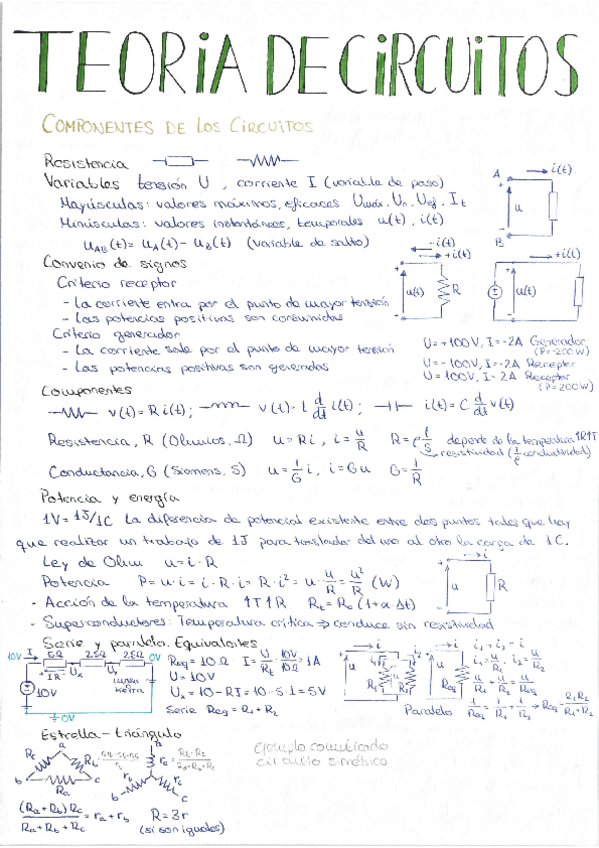 TEORIA DE CIRCUITOS
COMPONENTES DE LOS CIRCUITOS
Resistencia
Variables tensión U, corriente I (variable de paso)
Mayúsculas: valores máximos, eficaces Umáx, U0, Uef, It
Minúsculas: valores instantáneos, temporales u(t), i(t)
uAB(t) = uA(t) - uB(t) (variable de salto)
A i(t)
u
B
Convenio de signos
Criterio receptor
- La corriente entra por el punto de mayor tensión
- Las potencias positivas son consumidas
Criterio generador
- La corriente sale por el punto de mayor tensión
- Las potencias positivas son generadas
-i(t)
+i(t)
u(t) R
+i(t)
u(t)
U=+100V, I=-2A Generador
(P=-200W)
U=-100V, I=-2A Receptor
U=100V, I=2A Receptor
(P=200W)
Componentes
v(t) = R i(t); v(t) = L d/dt i(t); i(t) = C d/dt v(t)
Resistencia, R (Ohmios, Ω) u = Ri, i = u/R R = ρ l/S depende de la temperatura ↑R↑T
resistividad (1/ρ conductividad)
Conductancia, G (Siemens, S) u = 1/G i, i = Gu G = 1/R
Potencia y energía
1V = 1J/1C La diferencia de potencial existente entre dos puntos tales que hay
que realizar un trabajo de 1J para trasladar del uno al otro la carga de 1C.
Ley de Ohm u = i·R
Potencia P = u·i = i·R·i = R·i² = u·u/R = u²/R (W)
i
u R
- Acción de la temperatura ↑T↑R Rt = R0 (1+α·Δt)
- Superconductores: Temperatura crítica ⇒ conduce sin resistividad
Serie y paralelo. Equivalentes
10V I 5Ω 2,5Ω 2,5Ω 0V
IR Ux
10V
0V
Req = 10Ω I = U/R = 10V/10Ω = 1A
U = 10V
Ux = 10 - RI = 10 - 5·1 = 5V
Serie Req = R1 + R2
i
u R1 R2
i
u Req
i1 + i2 = i
i1 = u/R1 i2 = u/R2
u/R1 + u/R2 = u/Req
Paralelo 1/Req = 1/R1 + 1/R2 → Req = R1R2/R1+R2
Estrella-triángulo
a
Rc Rb
b Ra c
ra
rb rc
b c
(Ra+Rb)Rc/Ra+Rb+Rc = ra + rb R = 3r
(si son iguales)
ejemplo comunicado
circuito simétrico